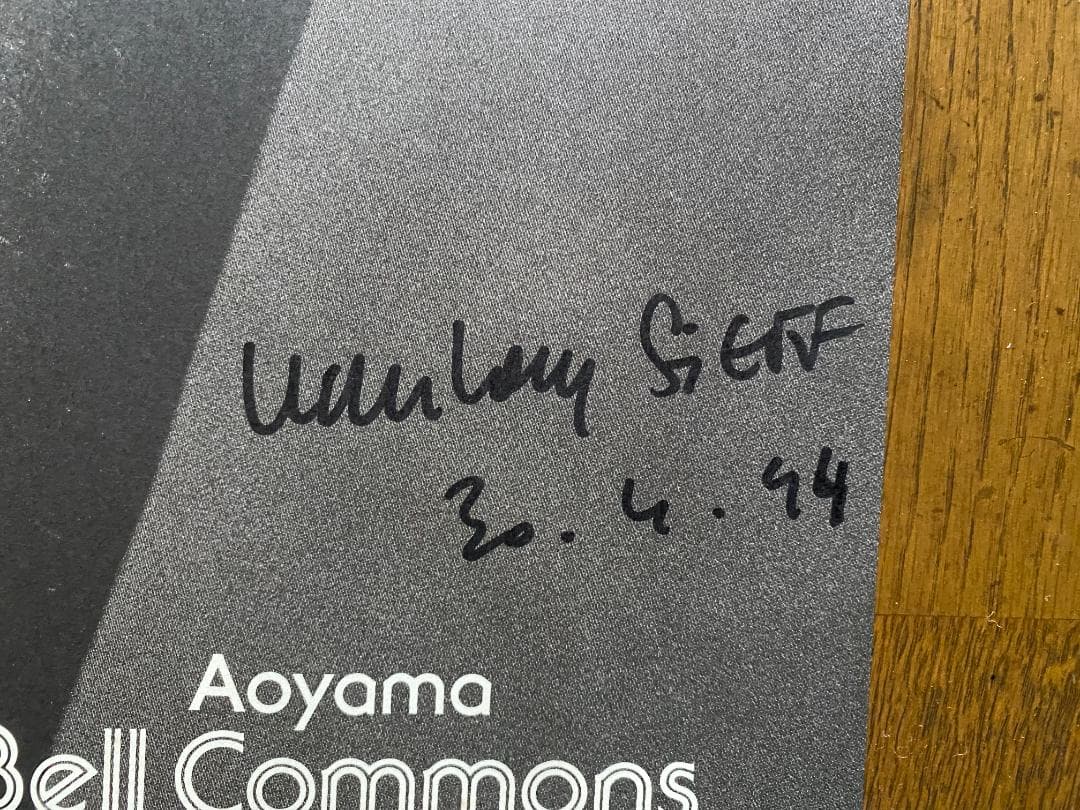 Jeanloup SiEFF
30.4.94
Aoyama
Bell Commons